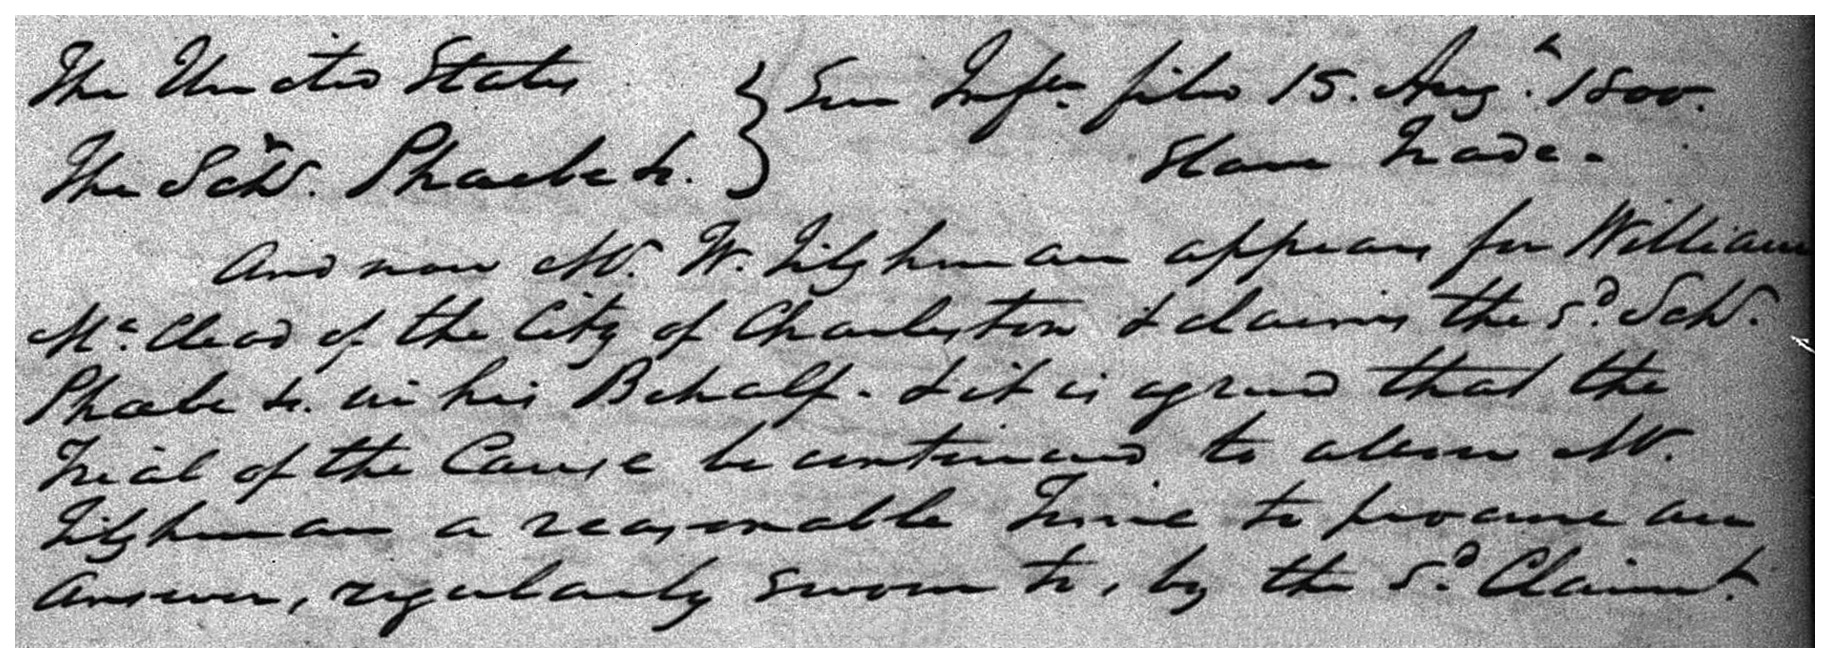 The United States } Sur Infn. filed 15. Augt. 1800.
The Schr. Phoebe &c. } Slave Trade.
And now Mr. W. Tilghman appears for William
Mc. Cleod of the City of Charleston & claims the sd. Schr.
Phoebe &c. in his Behalf. & it is agreed that the
Trial of the Cause be continued to allow Mr.
Tilghman a reasonable Time to procure an
Answer, regularly sworn to, by the sd. Claimt.